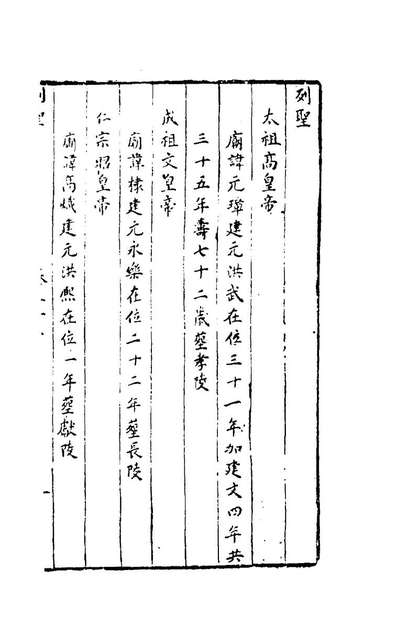 列聖
太祖高皇帝
廟諱元璋建元洪武在位三十一年加建文四年共
三十五年壽七十二歲塟孝陵
成祖文皇帝
廟諱棣建元永樂在位二十二年塟長陵
仁宗昭皇帝
廟諱高熾建元洪熙在位一年塟獻陵
列聖